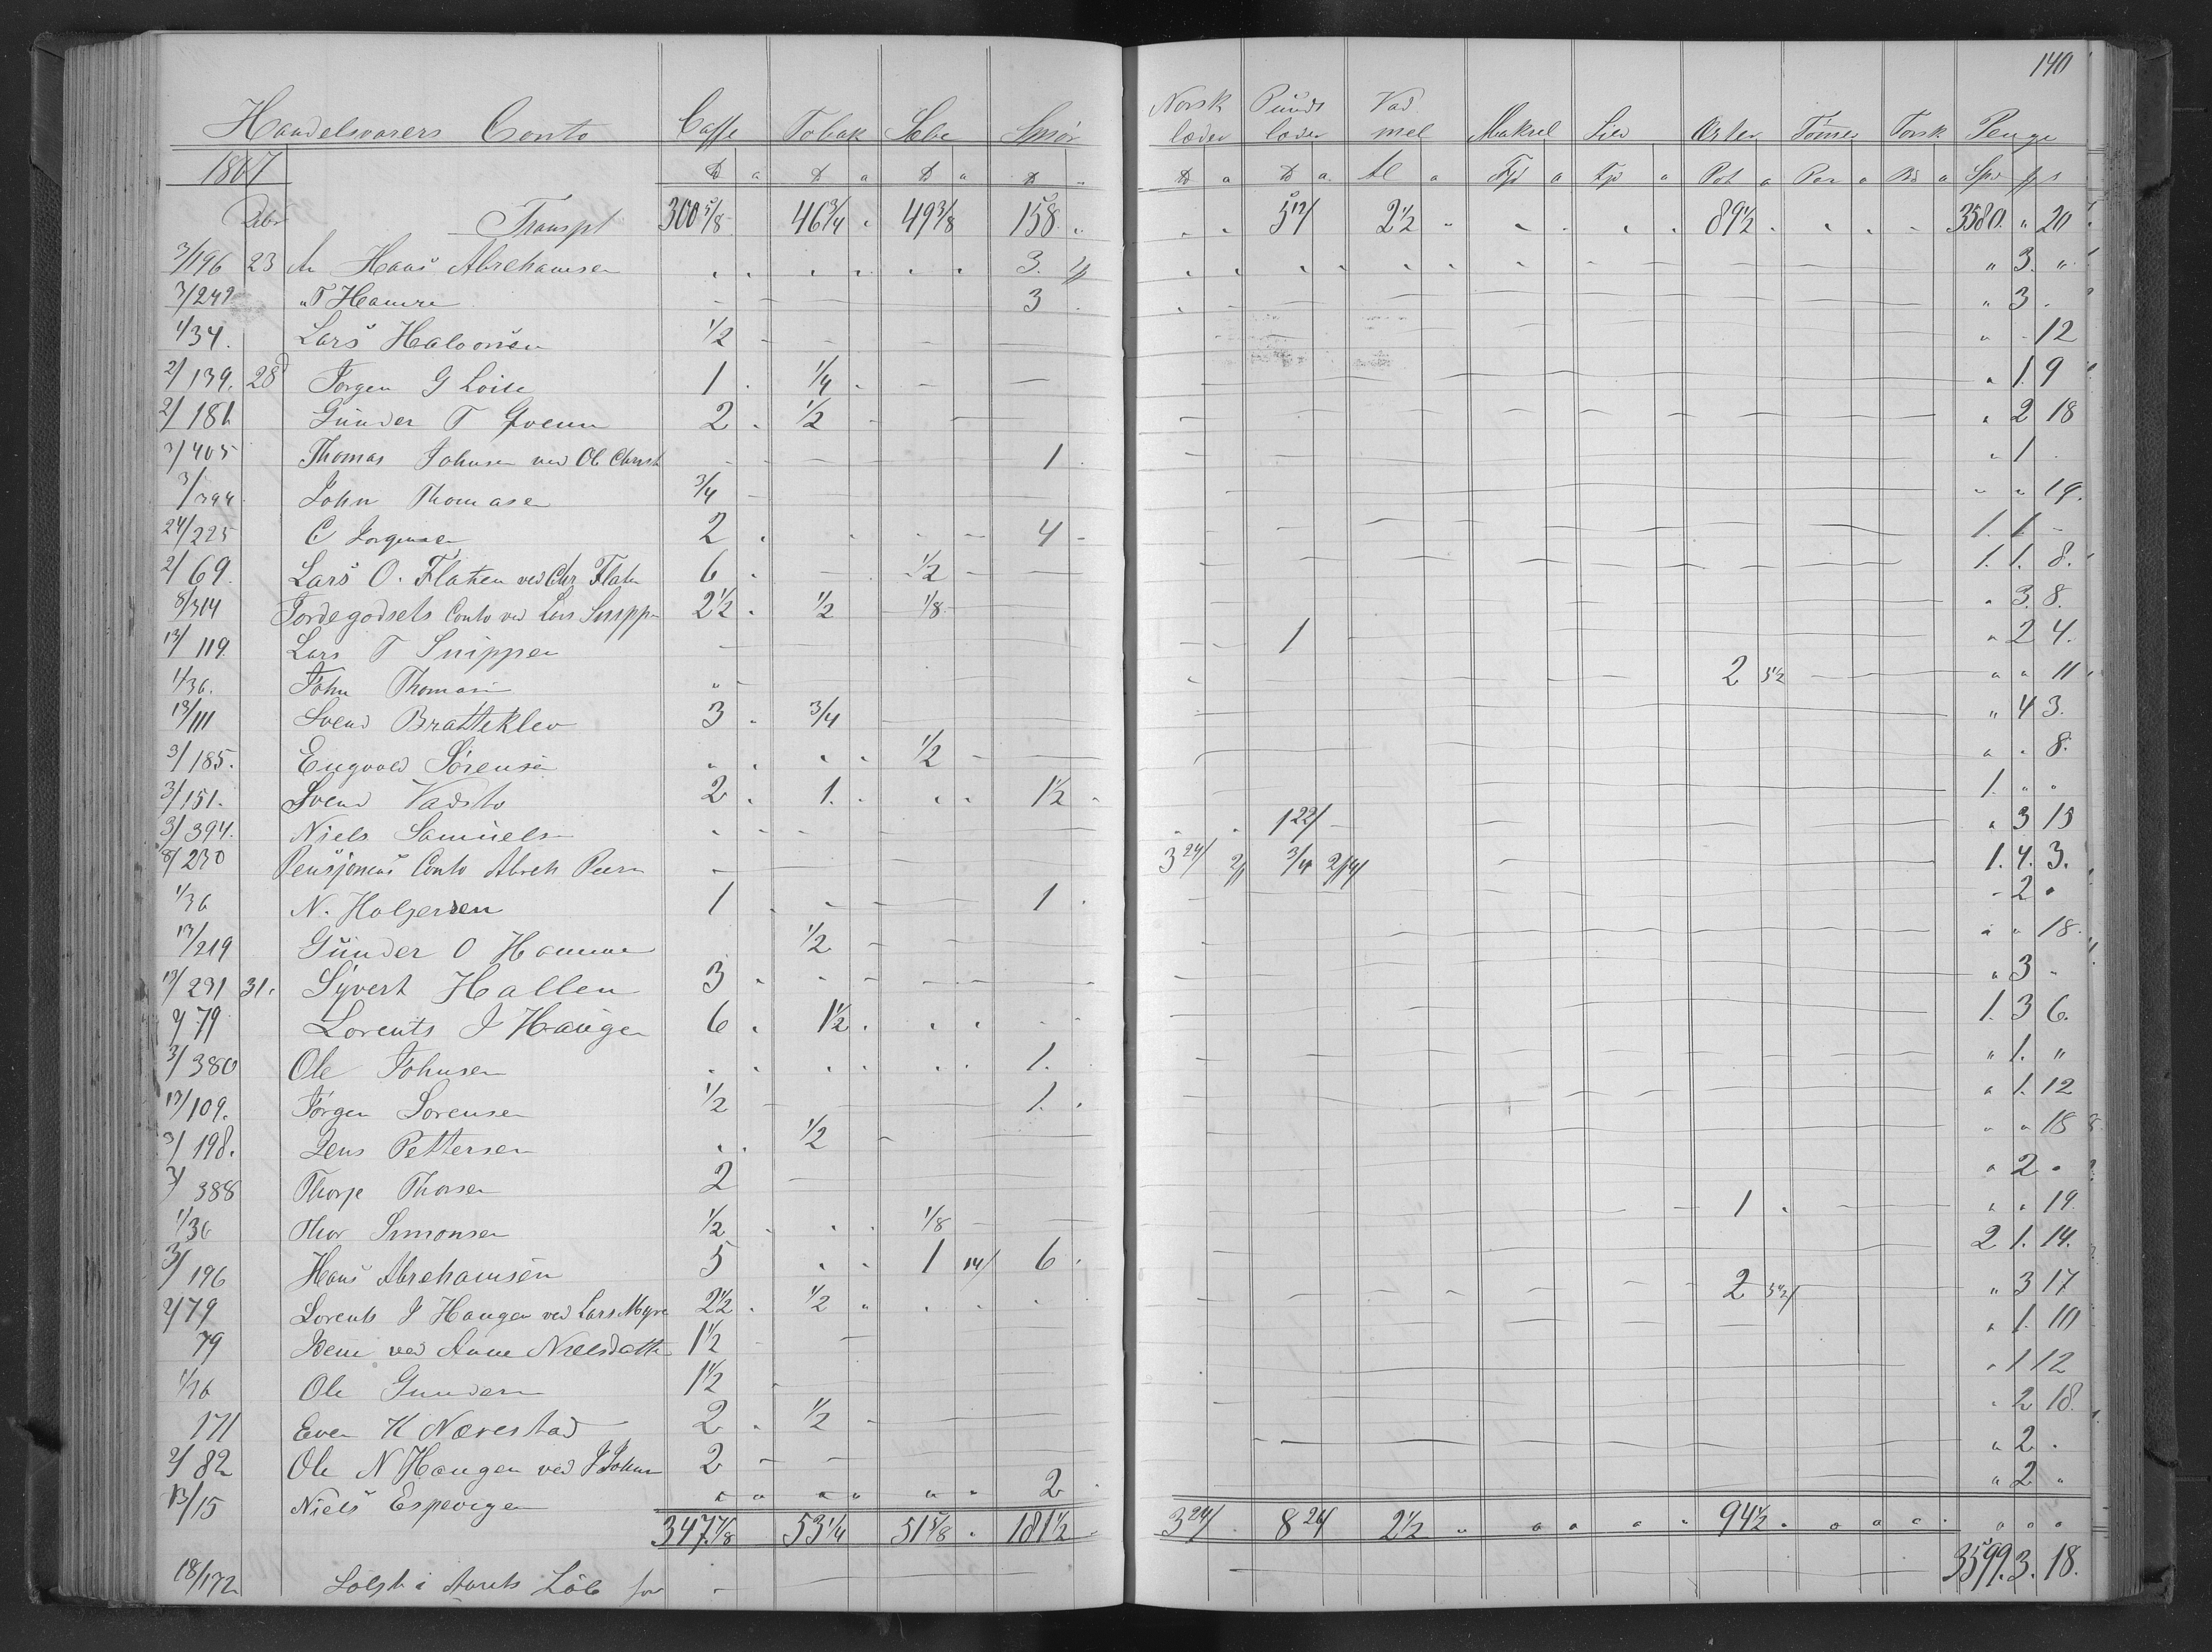 140
Norsk Punds Vad
Handelsvarers Conto Caffe Tobak Sæbe Smør læder læder mel Makrel Sild Erter Tömmer Torsk Penge
1867 ℔ a ℔ a ℔ a ℔ a ℔ a ℔ a Al a Tjd a Tjd a Pot a Par a a Spd
Dbr Transpt 300 5/8 46 3/4 49 3/8 158 5 12/ 2 1/2 89 1/2 3580 " 20
3/196 23 An Hans Abrehamsen 3. " 3. "
3/242 " T Hamre 3 " 3 .
1/34. Lars Halvorsen 1/2 " - 12
2/139. 28 Jørgen G Loite 1 1/4 " 1. 9
2/181 Gunder T Qvenne 2 1/2 " 2 18
3/405 Thomas Johnsen ved Ol Christ 1 " 1 .
3/394 John Thomasen 3/4 " " 19.
24/225 C Jorgensen 2 4 1. 1 -
2/69. Lars O. Flaten ved Chr Flaten 6 1/2 1. 1. 8.
8/314 Jordegodsets Conto ved Lars Snippen 2 1/2 1/2 1/8 " 3. 8.
13/119 Lars T Snippen 1 " 2 4.
1/36. John Thomasen 2 5 1/2 " " 11
13/111 Svend Bratteklev 3 3/4 " 4 3.
3/185. Engvold Sörensen 1/2 " " 8.
3/151. Svend Vadsto 2 1. 1 1/2 1. " "
3/394. Niels Samuelsen 1 22/ " 3 15
8/230 Pensjonens Conto Abreh Peersen 3 24/ 3/4 1. 4. 3.
1/36 N. Holgersen 1 1 - 2 "
13/219 Gunder O Hamre 1/2 " " 18.
13/291 31. Syvert Hallen 3 " 3 -
2/79 Lorents J Haugen 6 1 1/2 1. 3 6.
3/380 Ole Johnsen 1. " 1. "
13/109. Jörgen Sorensen 1/2 1. " 1. 12
3/198. Jens Pettersen 1/2 " " 18
3/388 Thorje Thorsen 2 " 2 "
1/36 Thor Simonsen 1/2 1/8 1 " " 19.
3/196 Hans Abrehamsen 5 1 14/ 6 2 1. 14.
2/79 Lorents J Haugen ved Lars Myre 2 1/2 1/2 2 " 3 17
79 Dem ved Anne Nielsdatter 1 1/2 " 1. 10
1/36 Ole Gundersen 1 1/2 " 1 12
171 Even K Nærestad 2 1/2 " 2 18.
2/82 Ole N Haugen ved J Johnsen 2 " 2 .
13/15 Niels Espevigen 2 " 2 "
347 7/8 53 1/4 51 5/8 181 1/2 3 24/ 8 24/ 2 1/2 94 1/2
18/172 Solgt i Aarets Løb for 3599. 3. 18.